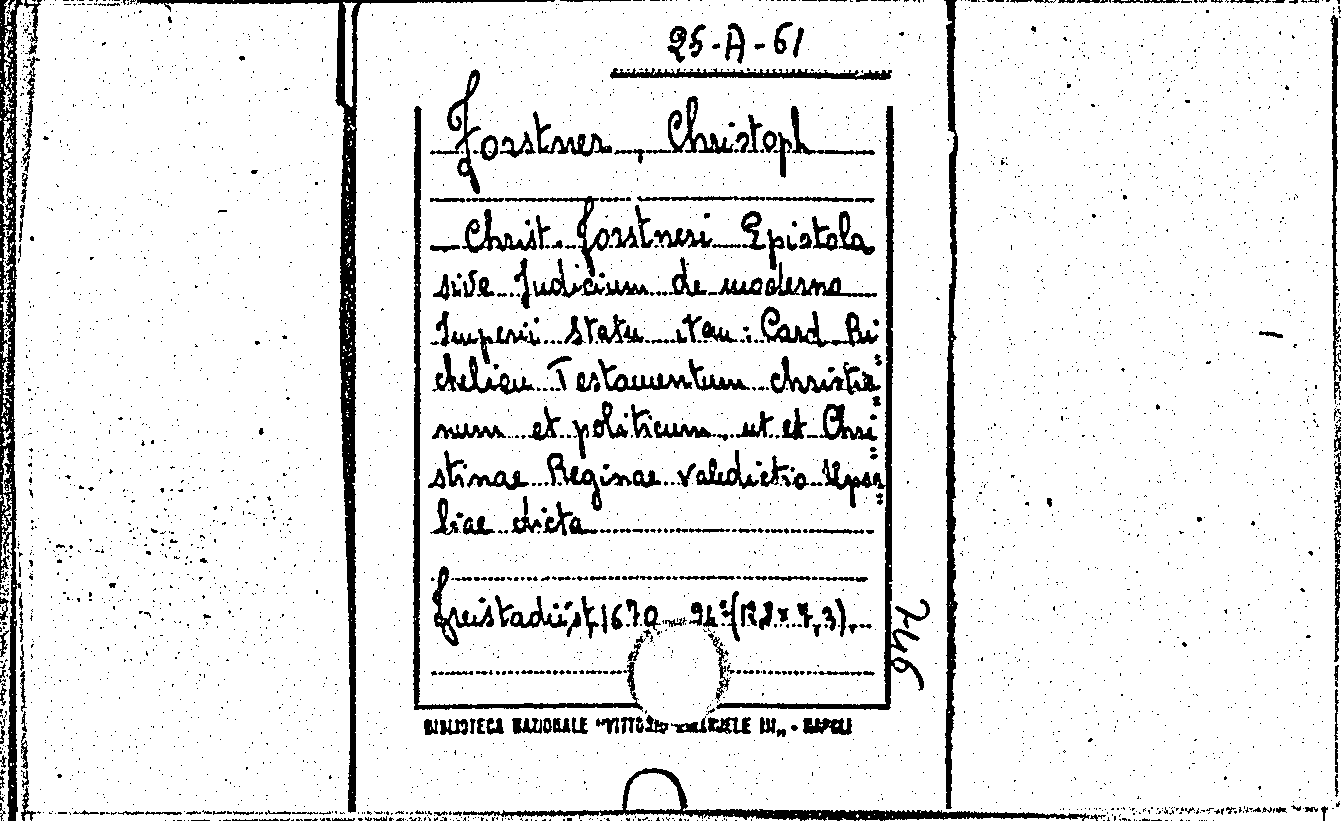 25-A-61
Forstner, Christoph
Christ. Forstneri Epistola
sive Judicium de moderno
Imperii Statu : Card Ri
chelieu Testamentum christia
num et politicum, ut et Chri
stinae Reginae Valedictio Upsa
liae dicta
Freistadii, 1670 24° (12,8 x 7,3).
746
BIBLIOTECA NAZIONALE "VITTORIO EMANUELE III„ - NAPOLI